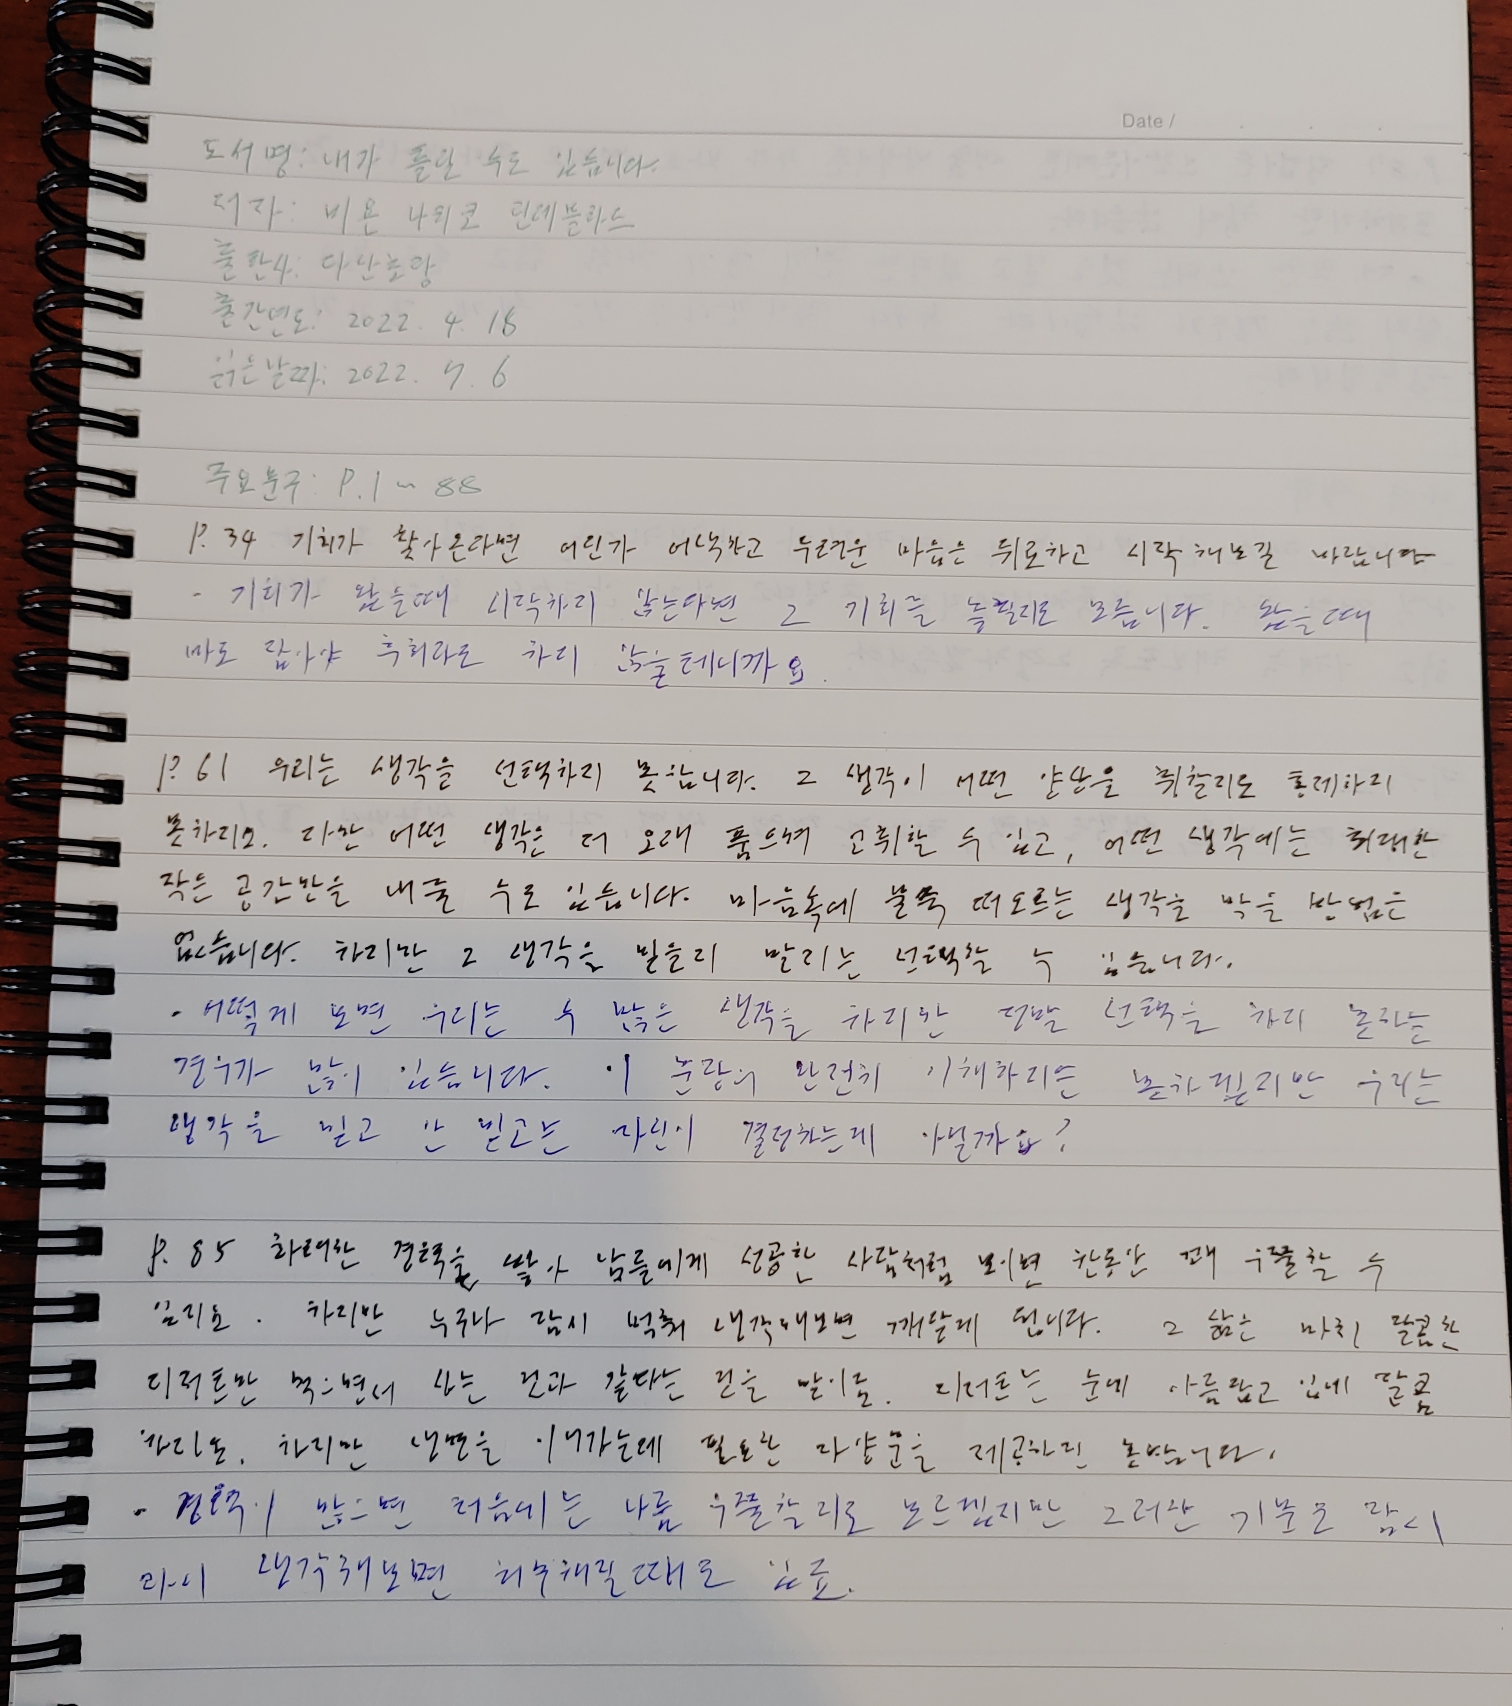 Date /
도서명: 내가 틀릴 수도 있습니다.
저자: 비욘 나티코 린데블라드
출판사: 다산초당
출간연도: 2022. 4. 18
읽은날짜: 2022. 7. 6
주요문구: P.1 ~ 88
P. 34 기회가 찾아온다면 여인가 어색하고 두려운 마음은 뒤로하고 시작해보길 바랍니다
- 기회가 왔을때 시작하지 않는다면 그 기회를 놓칠지도 모릅니다. 왔을때
바로 잡아야 후회라도 하지 않을테니까요.
P. 61 우리는 생각을 선택하지 못합니다. 그 생각이 어떤 양상을 취할지도 통제하지
못하지요. 다만 어떤 생각은 더 오래 품으며 고취할 수 있고, 어떤 생각에는 최대한
작은 공간만을 내줄 수도 있습니다. 마음속에 불쑥 떠오르는 생각을 막을 방법은
없습니다. 하지만 그 생각을 믿을지 말지는 선택할 수 있습니다.
- 어떻게 보면 우리는 수 많은 생각을 하지만 정말 선택을 하지 못하는
경우가 많이 있습니다. 이 문장의 완전히 이해하지는 못하겠지만 우리는
생각을 믿고 안 믿고는 자신이 결정하는게 아닐까요?
P. 85 화려한 경력을 쌓아 남들에게 성공한 사람처럼 보이면 한동안 꽤 우쭐할 수
있지요. 하지만 누구나 잠시 멈춰 생각해보면 깨닫게 됩니다. 그 삶은 마치 달콤한
디저트만 먹으면서 사는 것과 같다는 것을 말이죠. 디저트는 눈에 아름답고 입에 달콤
하지요. 하지만 생명을 이어가는데 필요한 자양분을 제공하진 못합니다.
- 경력이 많으면 처음에는 나름 우쭐할지도 모르겠지만 그러한 기분도 잠시
다시 생각해보면 허무해질때도 있죠.